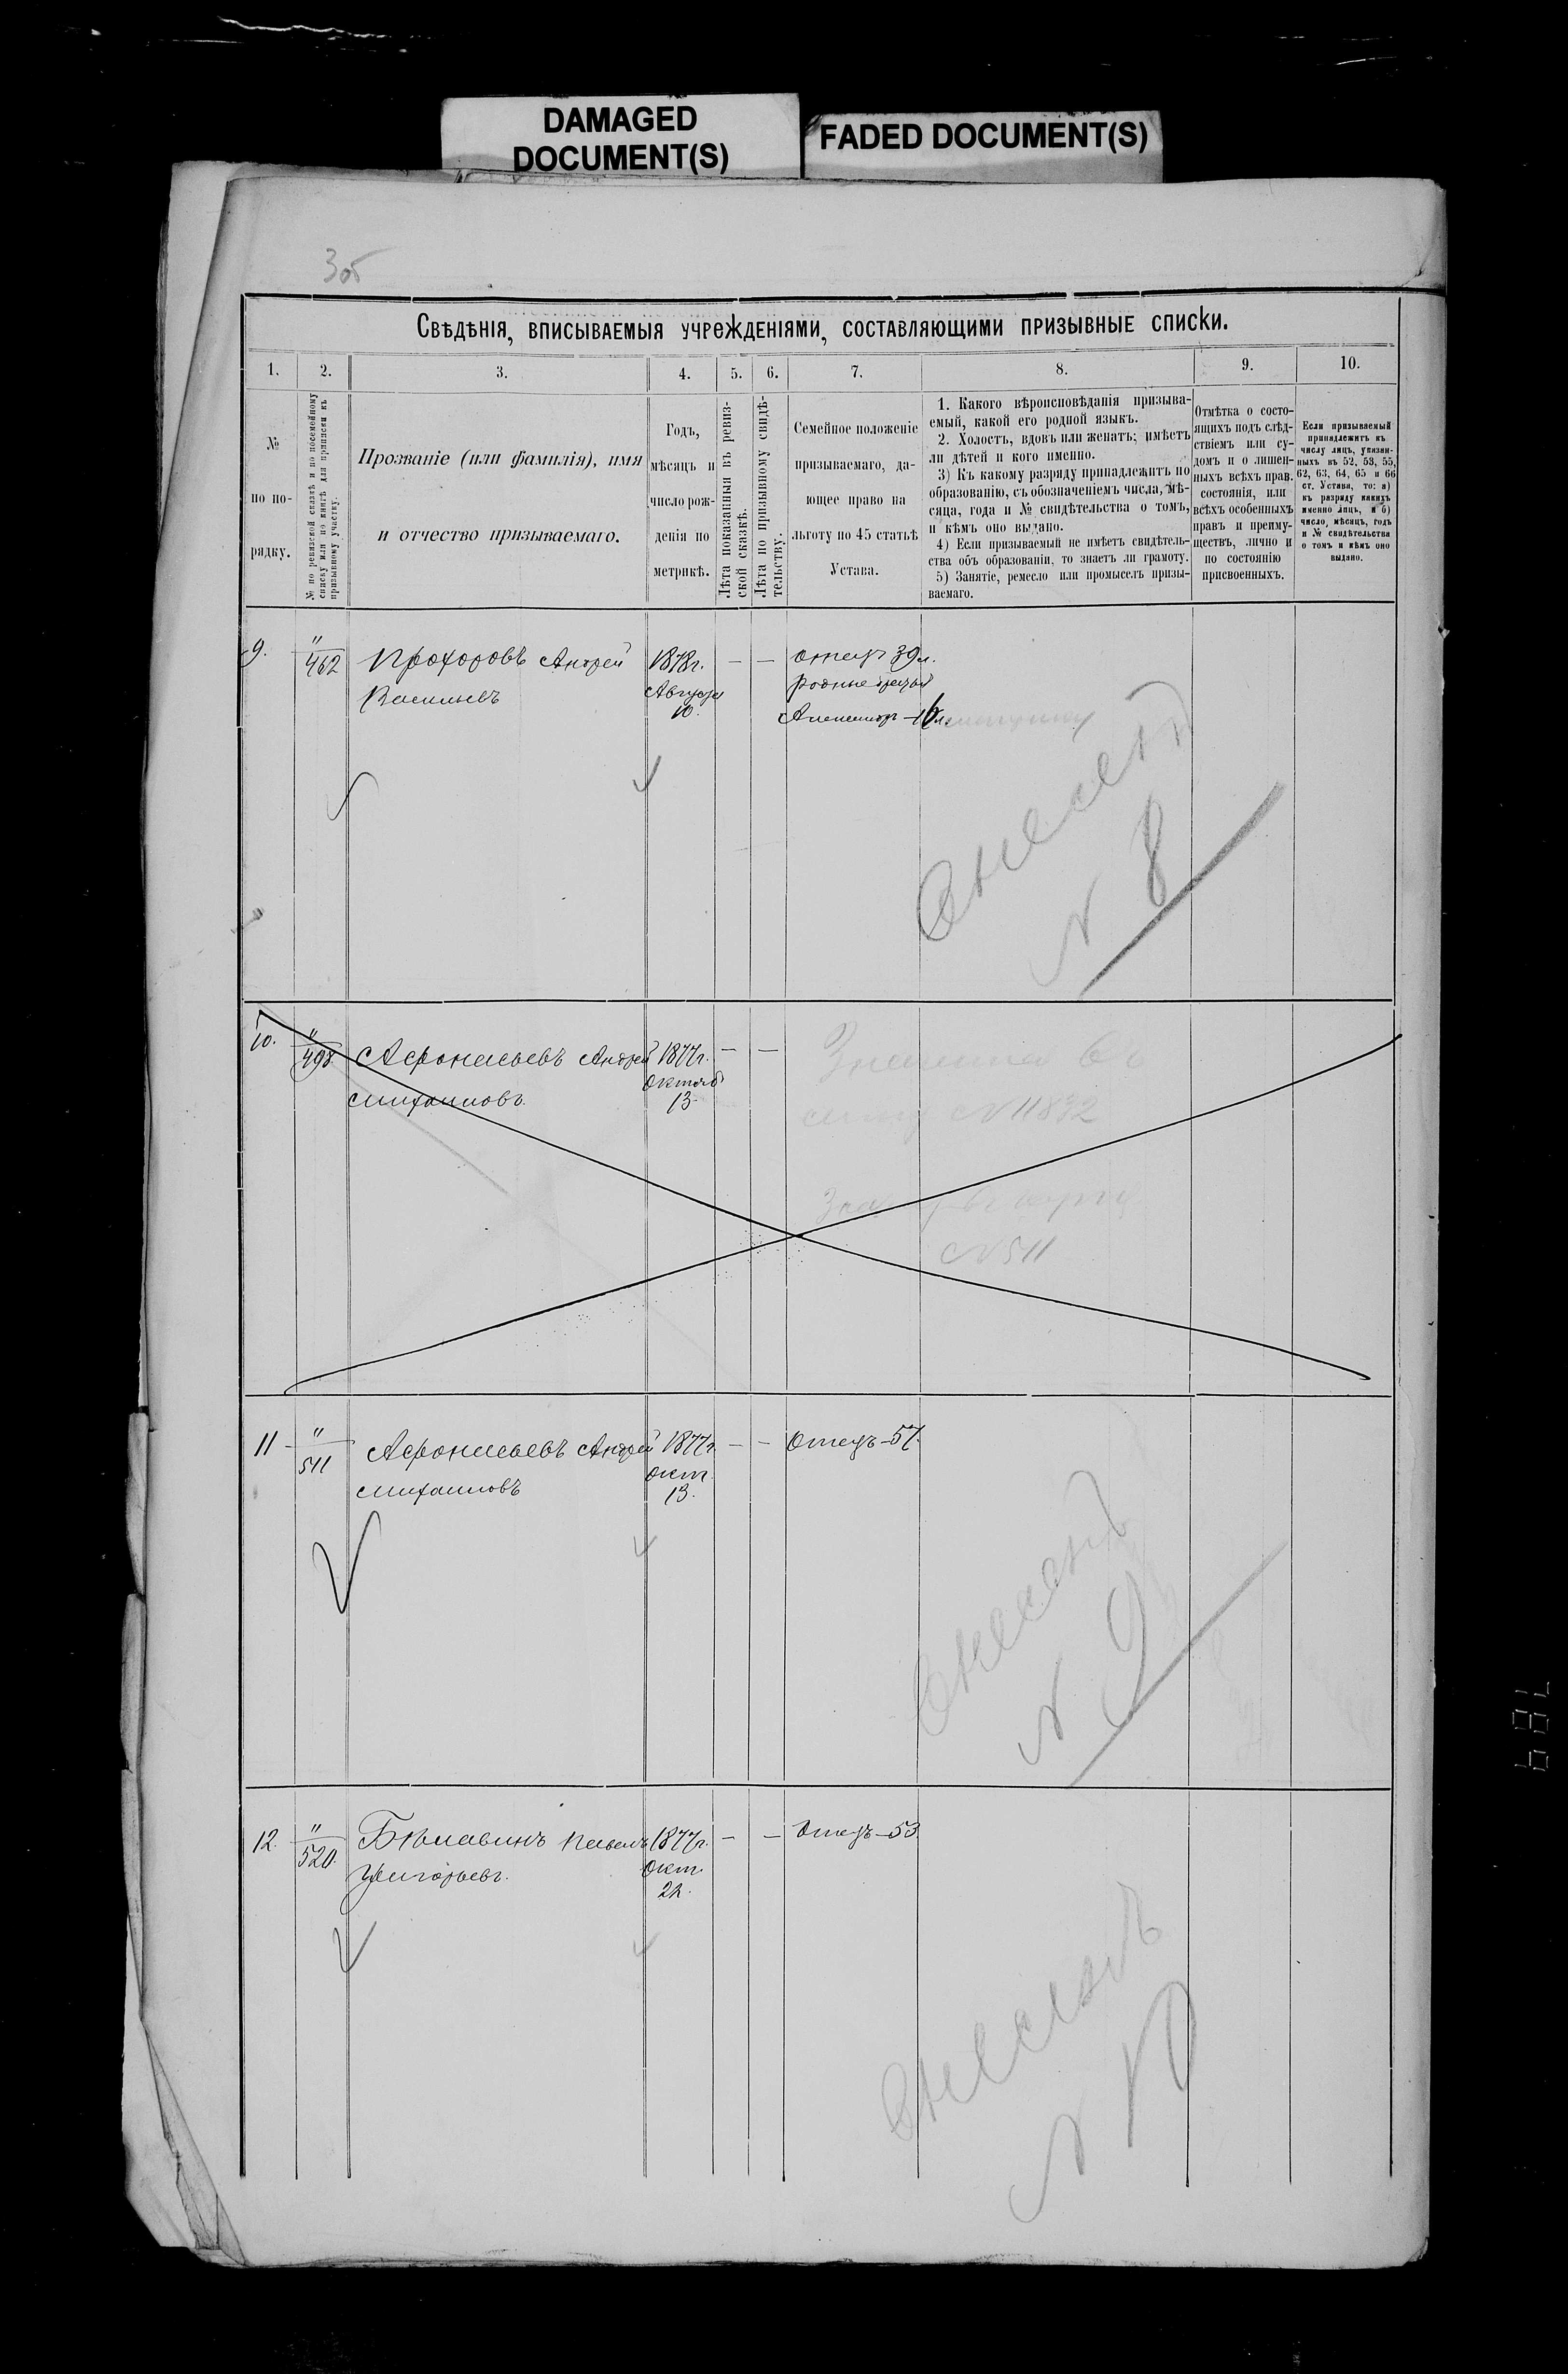 DAMAGED
DOCUMENT(S)
FADED DOCUMENT(S)
3об
Свѣдѣнія, вписываемыя учрежденіями, составляющими призывные списки.
1. 2. 3. 4. 5. 6. 7. 8. 9. 10.
№
по по-
рядку.
№ по ревизской сказкѣ и по посемейному
списку или по книгѣ для приписки къ
призывному участку.
Прозваніе (или фамилія), имя
и отчество призываемаго.
Годъ,
мѣсяцъ и
число рож-
денія по
метрикѣ.
Лѣта показанныя въ ревиз-
ской сказкѣ.
Лѣта по призывному свидѣ-
тельству.
Семейное положеніе
призываемаго, да-
ющее право на
льготу по 45 статьѣ
Устава.
1. Какого вѣроисповѣданія призыва-
емый, какой его родной языкъ.
2. Холостъ, вдовъ или женатъ; имѣетъ
ли дѣтей и кого именно.
3) Къ какому разряду принадлежитъ по
образованію, съ обозначеніемъ числа, мѣ-
сяца, года и № свидѣтельства о томъ,
и кѣмъ оно выдано.
4) Если призываемый не имѣетъ свидѣтель-
ства объ образованіи, то знаетъ ли грамоту.
5) Занятіе, ремесло или промыселъ призы-
ваемаго.
Отмѣтка о состо-
ящихъ подъ слѣд-
ствіемъ или су-
домъ и о лишен-
ныхъ всѣхъ прав.
состоянія, или
всѣхъ особенныхъ
правъ и преиму-
ществъ, лично и
по состоянію
присвоенныхъ.
Если призываемый
принадлежитъ къ
числу лицъ, указан-
ныхъ въ 52, 53, 55,
62, 63, 64, 65 и 66
ст. Устава, то: а)
къ разряду какихъ
именно лицъ, и б)
число, мѣсяцъ, годъ
и № свидѣтельства
о томъ и кѣмъ оно
выдано.
9. " 462 Прохоровъ Андрей 1878г. — — отецъ 39л.
Васильевъ Августа родные братья
10. Александр — 16л.
Внесенъ
N 8
10. " 498 Афонасьевъ Андрей 1877г. — —
Михаиловъ Октяб
13
N 11832
N 511
11 " 511 Афонасьевъ Андрей 1877г. — — Отецъ — 57.
Михаиловъ окт.
13.
Внесенъ
N 9
12. " 520. Бѣлавинъ Павелъ 1877г. — — Отецъ — 53
Григорьевъ. Окт.
22.
Внесенъ
N 10
789